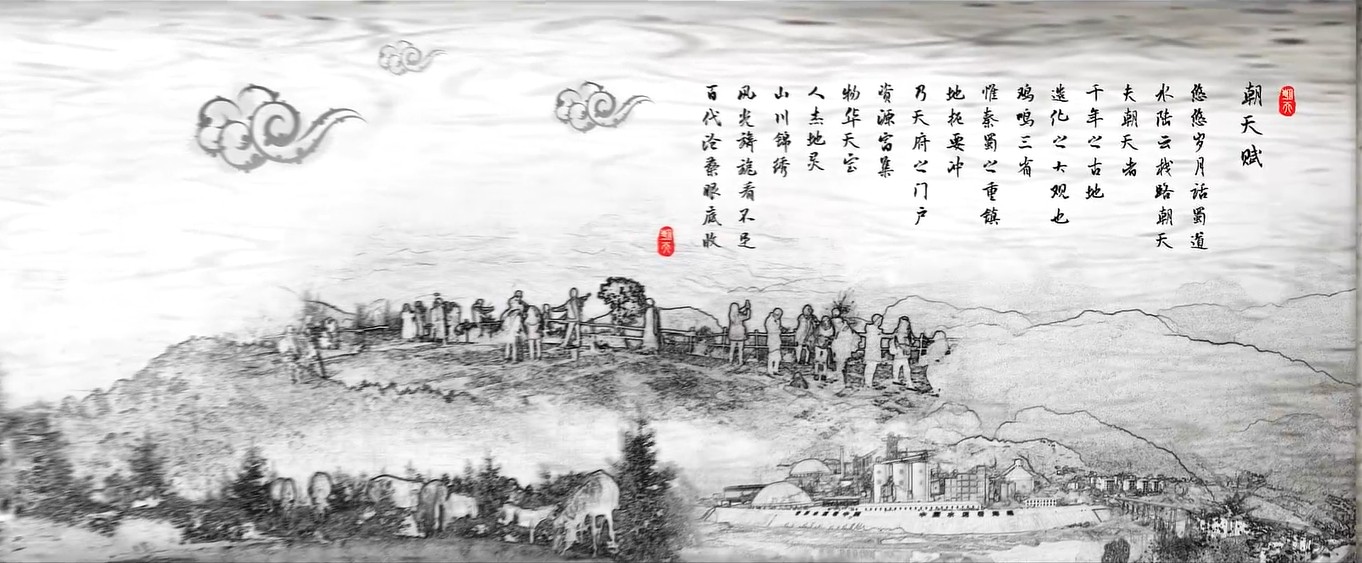 朝天
朝天赋
悠悠岁月话蜀道
水陆云栈路朝天
夫朝天者
千年之古地
造化之大观也
鸡鸣三省
惟秦蜀之重镇
地扼要冲
乃天府之门户
资源富集
物华天宝
人杰地灵
山川锦绣
风光旖旎看不足
百代沧桑眼底收
朝天